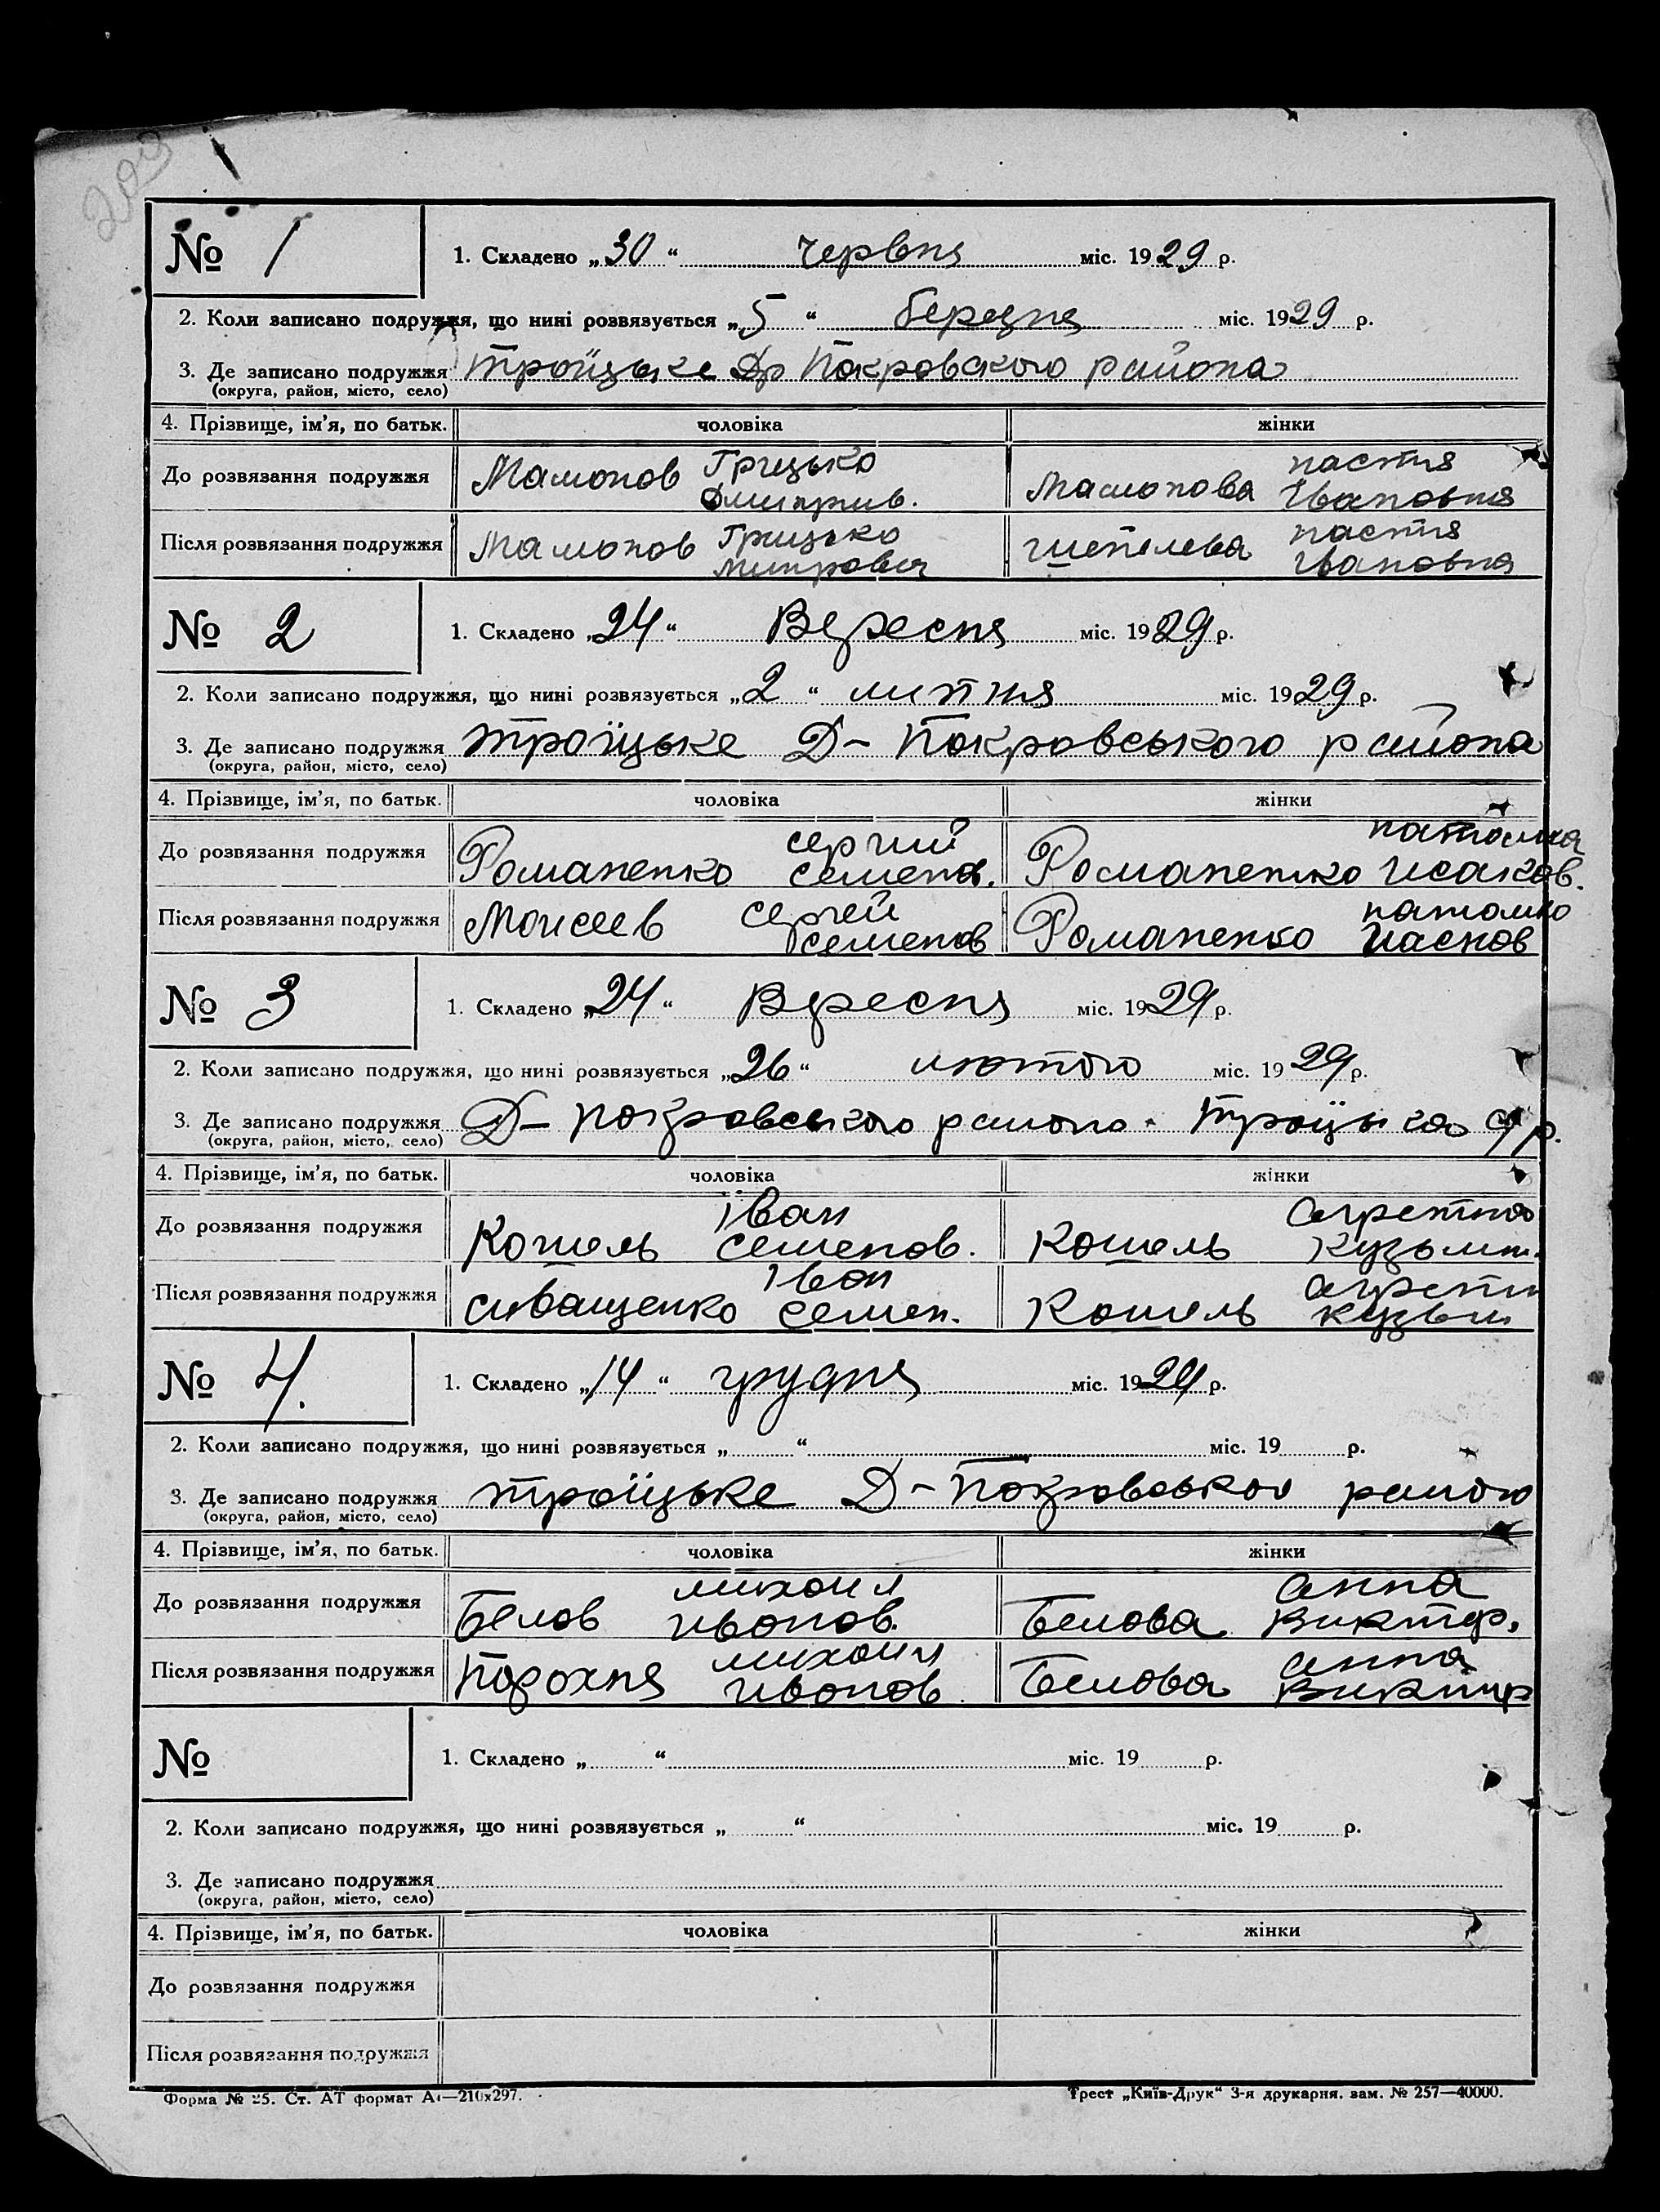 203
№ 1
1. Складено „30“ червня міс. 1929 р.
2. Коли записано подружжя, що нині розвязується „5“ березня міс. 1929 р.
3. Де записано подружжя Троїцьке Др Покровского района
(округа, район, місто, село)
4. Прізвище, ім'я, по батьк. чоловіка жінки
До розвязання подружжя Мамонов Грицько Дмитрив. Мамонова настя Ивановня
Після розвязання подружжя Мамонов Грицько Митрович Шепелева настя Ивановна
№ 2
1. Складено „24“ Вересня міс. 1929 р.
2. Коли записано подружжя, що нині розвязується „2“ липня міс. 1929 р.
3. Де записано подружжя Троїцьке Д- Покровського района
(округа, район, місто, село)
4. Прізвище, ім'я, по батьк. чоловіка жінки
До розвязання подружжя Романенко сергий семенов. Романенко наталка Исаков.
Після розвязання подружжя Моисеев сергей семенов Романенко
№ 3
1. Складено „24“ Вересня міс. 1929 р.
2. Коли записано подружжя, що нині розвязується „26“ лютого міс. 1929 р.
3. Де записано подружжя Д- покровського району Троїцька с/р.
(округа, район, місто, село)
4. Прізвище, ім'я, по батьк. чоловіка жінки
До розвязання подружжя Кошель іван семенов. Кошель Кузьм.
Після розвязання подружжя Іван семен. Кошель
№ 4.
1. Складено „14“ грудня міс. 1929 р.
2. Коли записано подружжя, що нині розвязується „ “ міс. 19 р.
3. Де записано подружжя троїцьке Д- Покровського району
(округа, район, місто, село)
4. Прізвище, ім'я, по батьк. чоловіка жінки
До розвязання подружжя Белов михаил ивонов. Белова анна Виктор.
Після розвязання подружжя Порохня михаил ивонов. Белова анна Виктир
№
1. Складено „ “ міс. 19 р.
2. Коли записано подружжя, що нині розвязується „ “ міс. 19 р.
3. Де записано подружжя
(округа, район, місто, село)
4. Прізвище, ім'я, по батьк. чоловіка жінки
До розвязання подружжя
Після розвязання подружжя
Форма № 25. Ст. АТ формат А4—210х297. Трест „Київ-Друк“ 3-я друкарня. зам. № 257—40000.